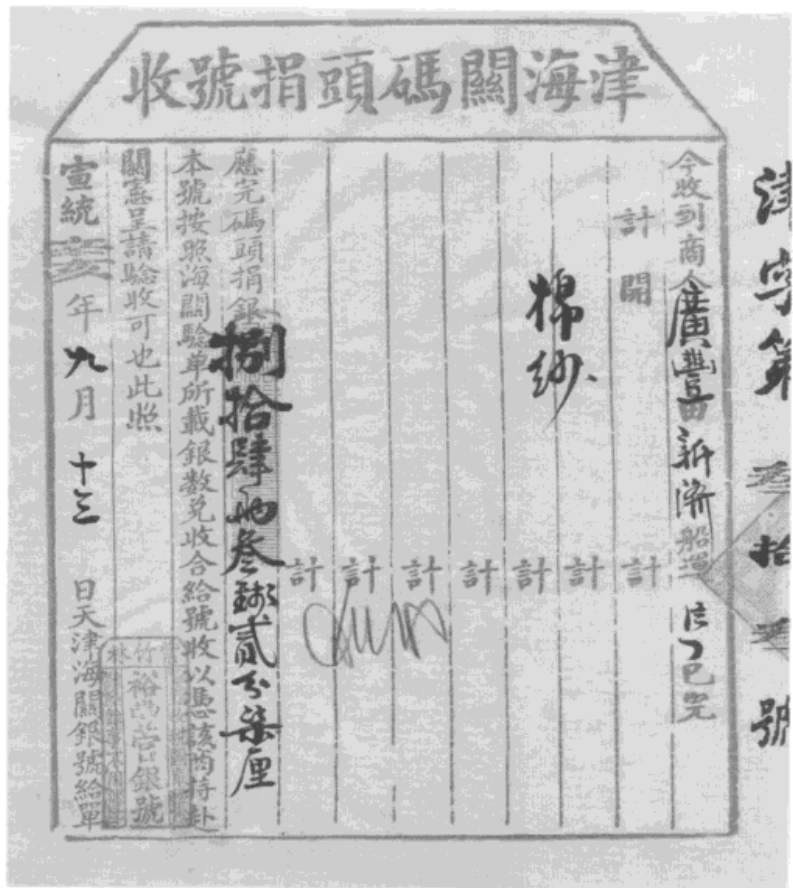 津海關碼頭捐號收
津字第 拾 號
今收到商人廣豐由新濟船運 已完
計開 計
計
棉紗 計
計
計
計
計
應完碼頭捐銀捌拾肆兩叁錢貳分柒厘
本號按照海關驗单所載銀数兌收合給號收以憑該商持赴
關憲呈請驗收可也此照
宣統 年九月十三日天津海關銀號給單
竹林
銀號